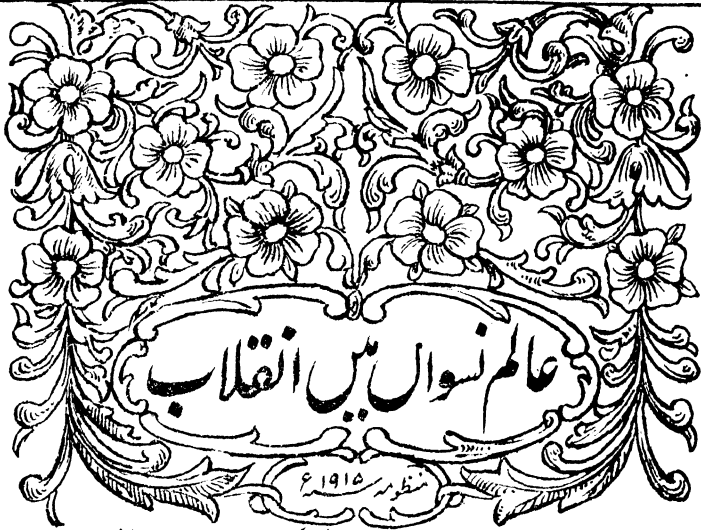 عالم نسواں میں انقلاب
منظومہ سنہ ۱۹۱۵ء